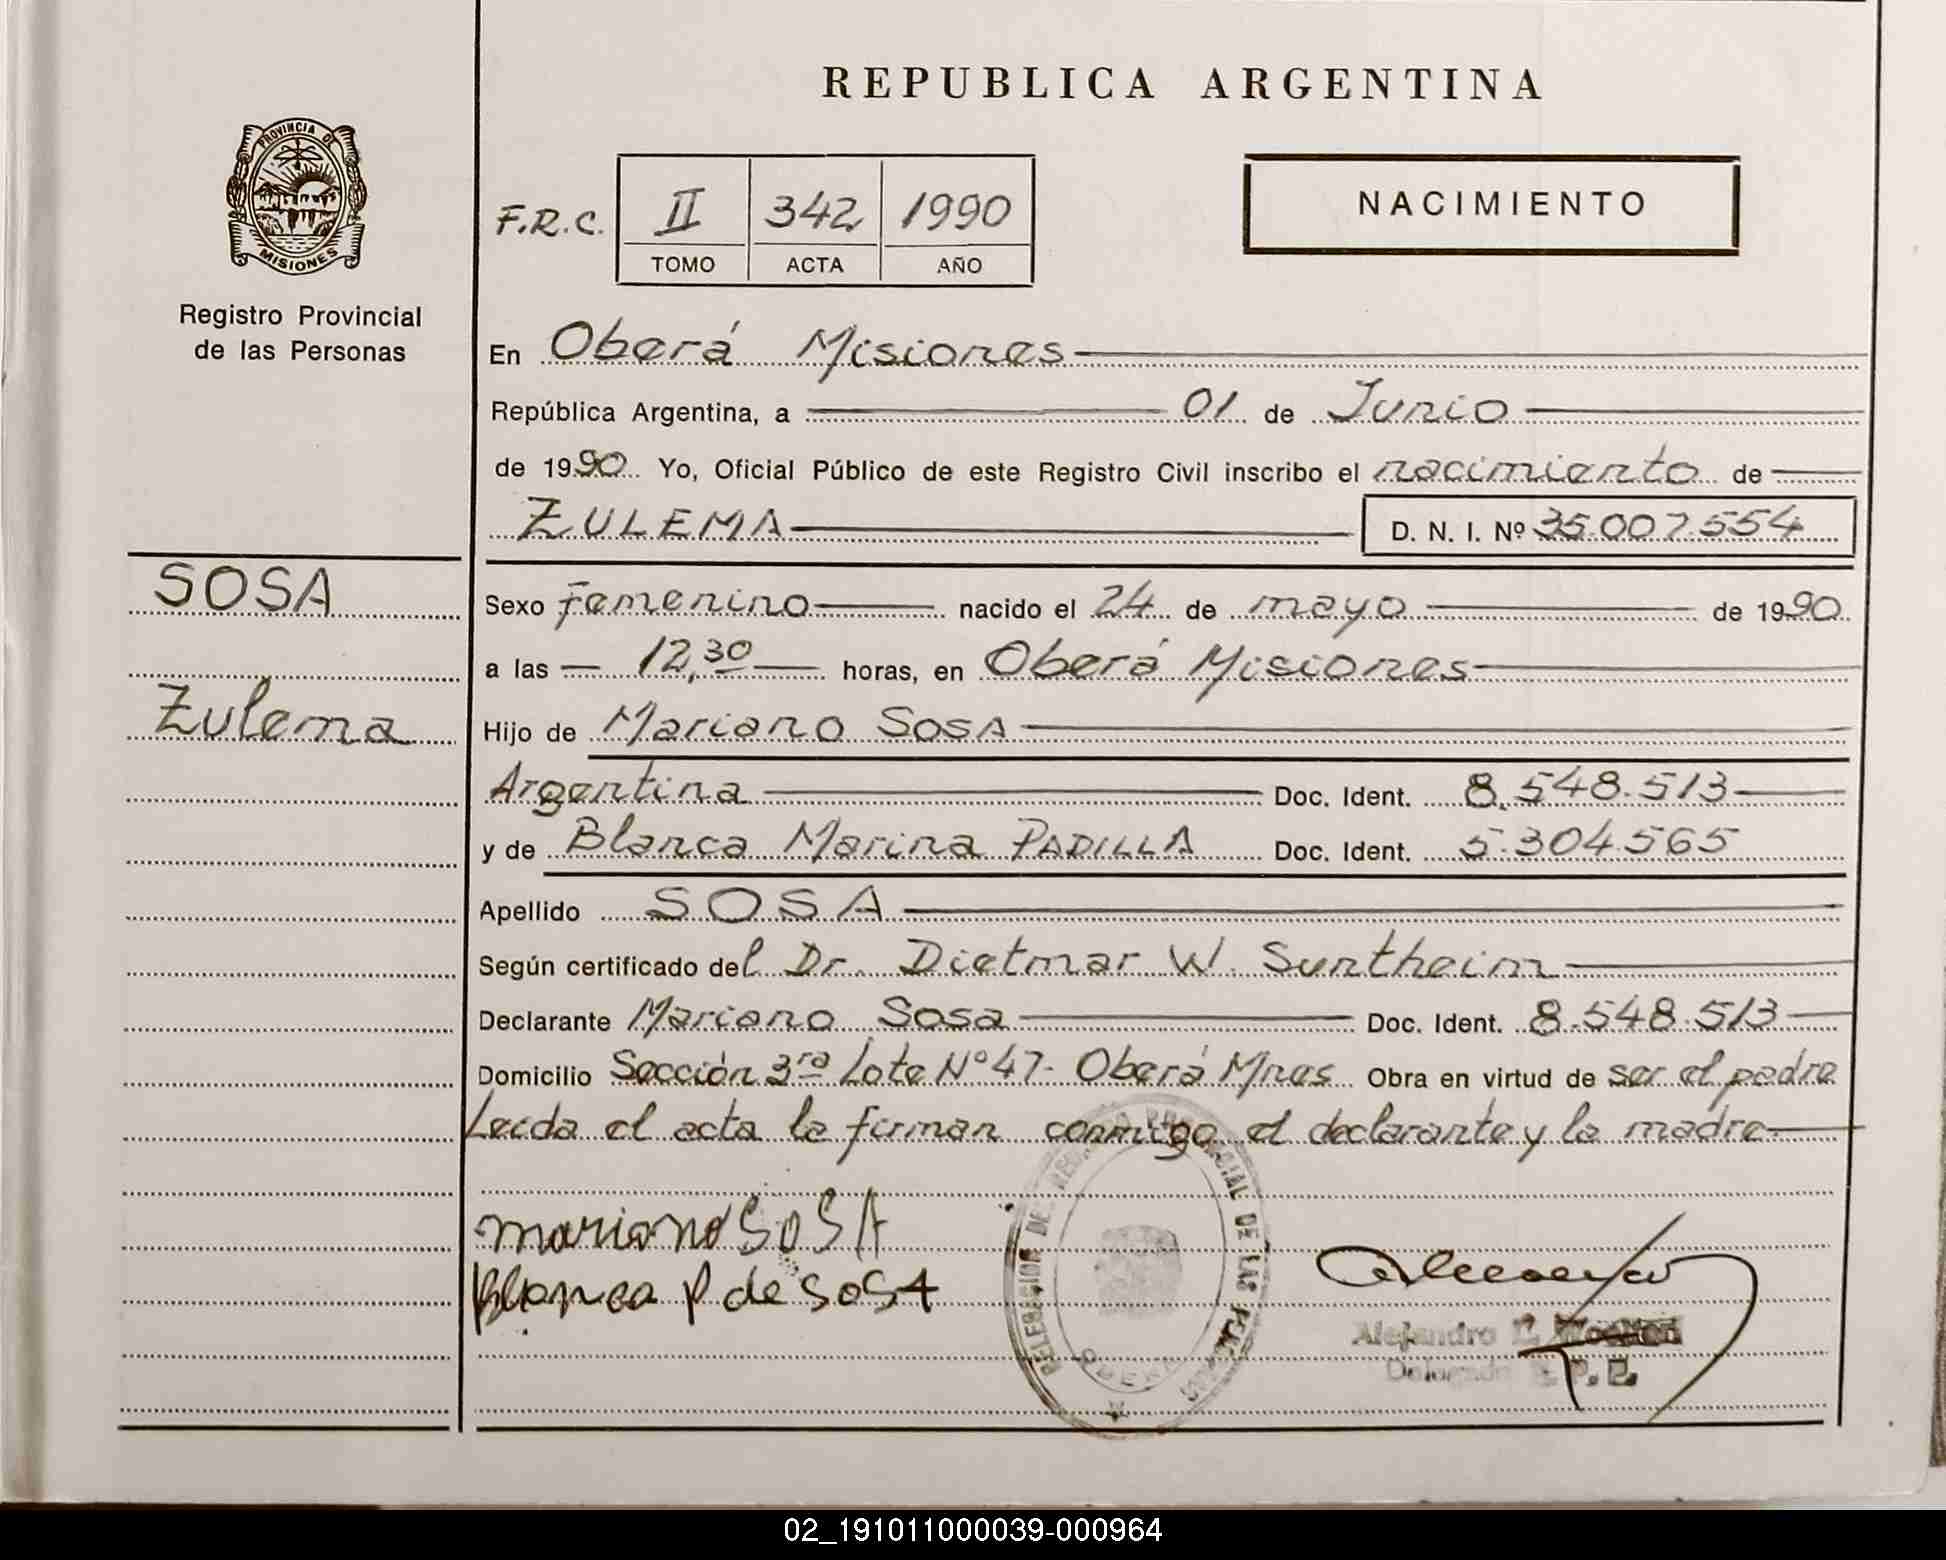 REPUBLICA ARGENTINA
PROVINCIA DE
MISIONES
Registro Provincial
de las Personas
F.R.C. II 342 1990
TOMO ACTA AÑO
NACIMIENTO
En Oberá Misiones
República Argentina, a 01 de Junio
de 1990 Yo, Oficial Público de este Registro Civil inscribo el nacimiento de
ZULEMA D. N. I. Nº 35.007.554
SOSA
Zulema
Sexo femenino nacido el 24 de mayo de 1990
a las 12,30 horas, en Oberá Misiones
Hijo de Mariano SOSA
Argentina Doc. Ident. 8.548.513
y de Blanca Marina PADILLA Doc. Ident. 5.304.565
Apellido SOSA
Según certificado del Dr. Dietmar W. Suntheim
Declarante Mariano Sosa Doc. Ident. 8.548.513
Domicilio Sección 3ra Lote Nº 47- Oberá Mnes Obra en virtud de ser el padre
Leida el acta la firman conmigo el declarante y la madre
mariano SOSA
Blanca P de SOSA
DELEGACION DEL REGISTRO PROVINCIAL DE LAS PERSONAS
OBERA
Alejandro
Delegado R. P. P.
02_191011000039-000964